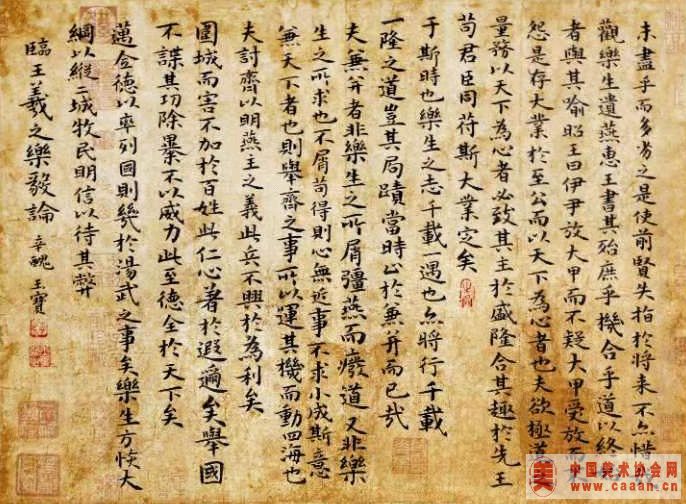 未盡乎而多劣之是使前賢失指於將来不亦惜
觀樂生遺燕惠王書其殆庶乎機合乎道以終
者與其喻昭王曰伊尹放大甲而不疑大甲受放而
怨是存大業於至公而以天下為心者也夫欲極道
量務以天下為心者必致其主於盛隆合其趣於先王
苟君臣同苻斯大業定矣
于斯時也樂生之志千載一遇也亦將行千載
一隆之道豈其局蹟當時止於兼并而已哉
夫兼并者非樂生之所屑彊燕而癈道又非樂
生之所求也不屑苟得則心無近事不求小成斯意
兼天下者也則舉齊之事所以運其機而動四海也
夫討齊以明燕主之義此兵不興於為利矣
圍城而害不加於百姓此仁心著於遐邇矣舉國
不謀其功除暴不以威力此至德全於天下矣
邁全德以率列國則幾於湯武之事矣樂生方恢大
綱以縱二城牧民明信以待其弊
臨王羲之樂毅論 辛醜 玉寶
中国美术协会网
www.caaan.cn